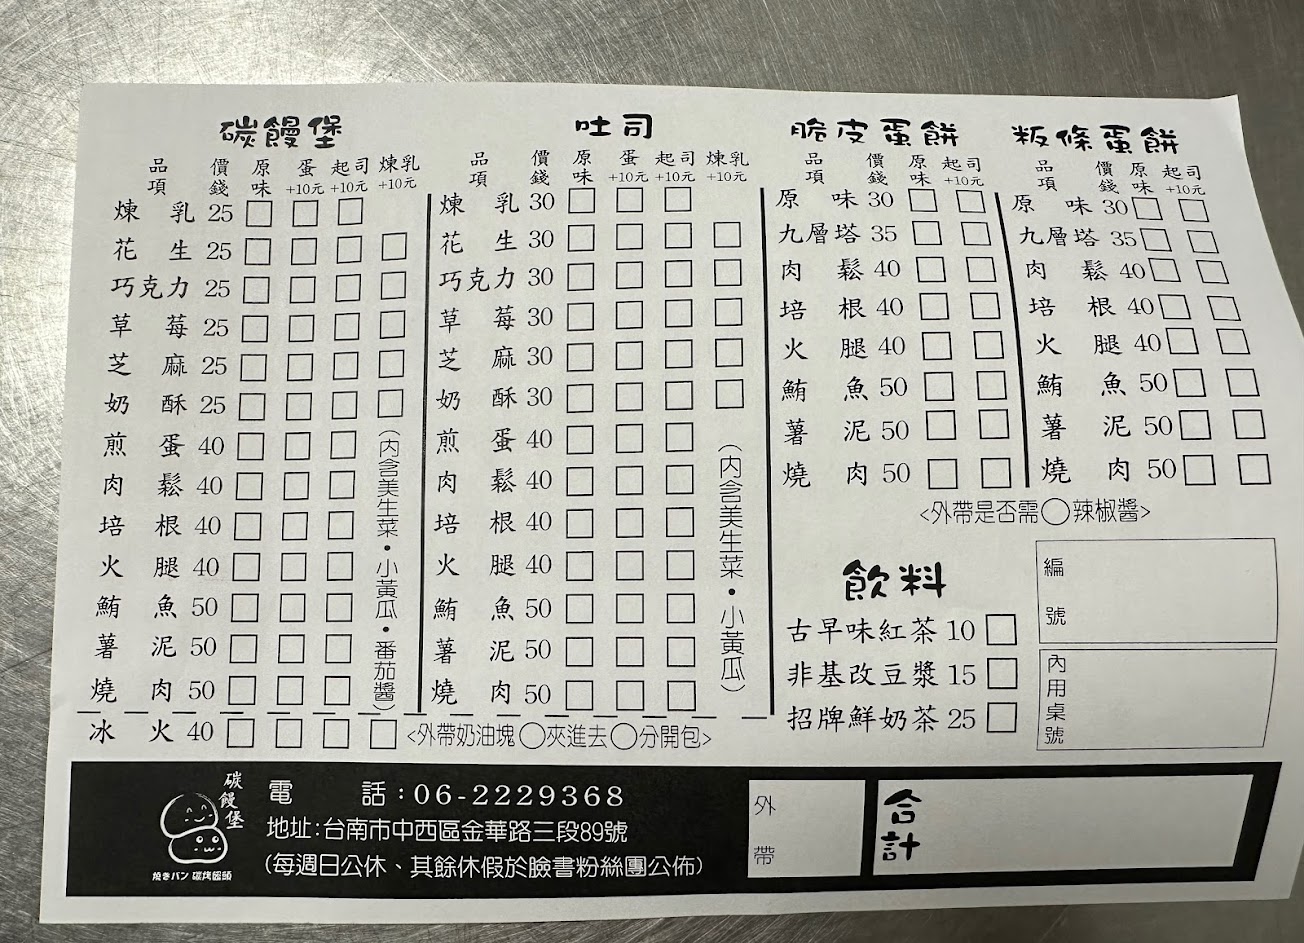 碳饅堡
品項 價錢 原味 蛋+10元 起司+10元 煉乳+10元
煉乳 25 □ □ □
花生 25 □ □ □ □
巧克力 25 □ □ □ □
草莓 25 □ □ □ □
芝麻 25 □ □ □ □
奶酥 25 □ □ □ □
煎蛋 40 □ □ □
肉鬆 40 □ □ □
培根 40 □ □ □
火腿 40 □ □ □
鮪魚 50 □ □ □
薯泥 50 □ □ □
燒肉 50 □ □ □
(內含美生菜•小黃瓜•番茄醬)
冰火 40 □ □ □ □ <外帶奶油塊○夾進去○分開包>
吐司
品項 價錢 原味 蛋+10元 起司+10元 煉乳+10元
煉乳 30 □ □ □
花生 30 □ □ □ □
巧克力 30 □ □ □ □
草莓 30 □ □ □ □
芝麻 30 □ □ □ □
奶酥 30 □ □ □ □
煎蛋 40 □ □ □
肉鬆 40 □ □ □
培根 40 □ □ □
火腿 40 □ □ □
鮪魚 50 □ □ □
薯泥 50 □ □ □
燒肉 50 □ □ □
(內含美生菜•小黃瓜)
脆皮蛋餅
品項 價錢 原味 起司+10元
原味 30 □ □
九層塔 35 □ □
肉鬆 40 □ □
培根 40 □ □
火腿 40 □ □
鮪魚 50 □ □
薯泥 50 □ □
燒肉 50 □ □
粄條蛋餅
品項 價錢 原味 起司+10元
原味 30 □ □
九層塔 35 □ □
肉鬆 40 □ □
培根 40 □ □
火腿 40 □ □
鮪魚 50 □ □
薯泥 50 □ □
燒肉 50 □ □
<外帶是否需○辣椒醬>
飲料
古早味紅茶 10 □
非基改豆漿 15 □
招牌鮮奶茶 25 □
編號
內用桌號
碳饅堡
焼きパン 碳烤饅頭
電話:06-2229368
地址:台南市中西區金華路三段89號
(每週日公休、其餘休假於臉書粉絲團公佈)
外帶
合計